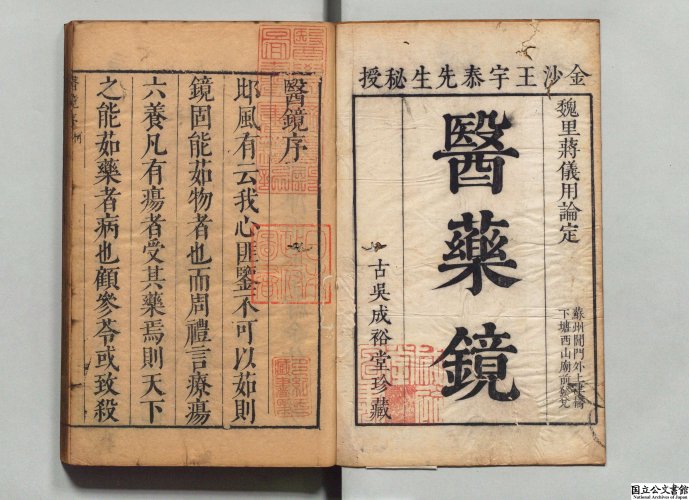 金沙王宇泰先生秘授
魏里蔣儀用論定
醫藥鏡
蘇州閶門外上
下塘西山廟前
古吳成裕堂珍藏
醫鏡序
邶風有云我心匪鑒不可以茹則
鏡固能茹物者也而周禮言療瘍
六養凡有瘍者受其藥焉則天下
之能茹藥者病也顧參苓或致殺
国立公文書館
National Archives of Japan